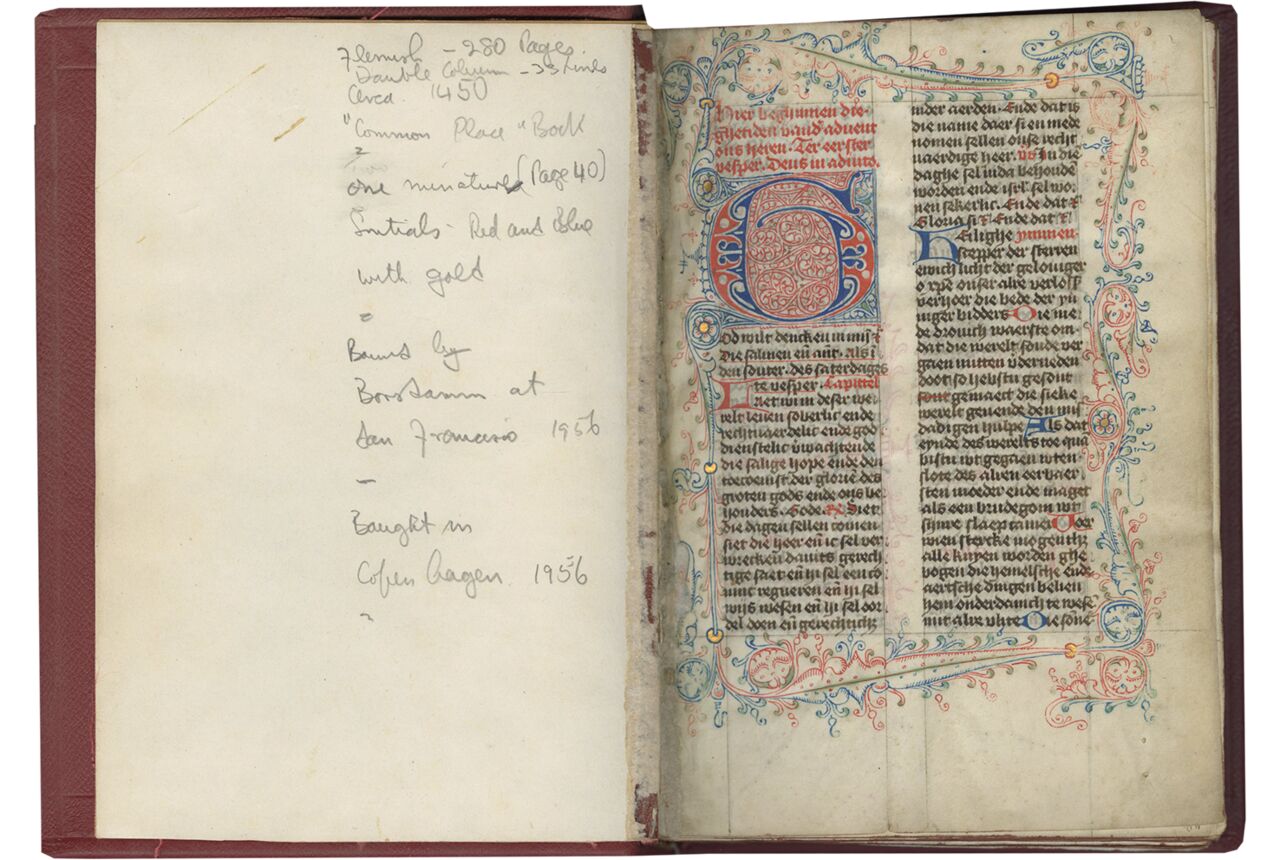 Flemish - 280 Pages.
Double Column - 33 Lines
Circa 1450
"Common Place" Book
one miniature (Page 40)
Initials - Red and Blue
with gold
Bound by
at
San Francisco 1956
Bought in
Copenhagen 1956
Hier beghinnen die
ghetiden vand' advent
ons heren. Ter eerster
vesper. Deus in adiuto.
God wilt dencken in mijn
Die salmen en̄ ant. als i
den souter. des saterdages
te vesper. Capittel
Laet uvn deser we
relt leven soberlic ende
rechtvaerdelic ende god
dienstelic v̄wachtende
die salige hope ende den
toecoemst der glorien des
groten gods ende ons be
houders. Gode. Siet
die dagen sellen comen
siet die heer en̄ ic sel ver
wrecken dauits gerech
tige saet en̄ hi sel een co
ninc regneren en̄ hi sel
wijs wesen en̄ hi sel oor
del doen en̄ gerechticheit
inder aerden. Ende dat is
die name daer si en mede
nomen sellen onse recht
vaerdige heer. In die
daghe sel iuda behouden
worden ende isrl' sel wo
nen sekerlic. Ende dat
Gloria si Ende dat
Heilighe ymnen
stepper der sterren
ewich licht der geloviger
xpe onser alre verlosser
verhoer die bede der yn
niger bidders Die me
de drouich waerste om
dat die werelt soude ver
gaen mitten v̄derueden
doot iso hebstu gesont
gemaect die sieke
werelt geuende den mis
dadigen hulpe Als dat
eynde des werelts toe qua
bistu wtgegaen wten
slote des alren eerbaer
sten moeder ende maget
als een brudegom wt
sinre slaepcamer Voer
wien stercke mogenth;
alle knyen worden ghe
bogen die hemelsche ende
aertsche dingen belien
hem onderdanich te wese
mit alre vlite O ie